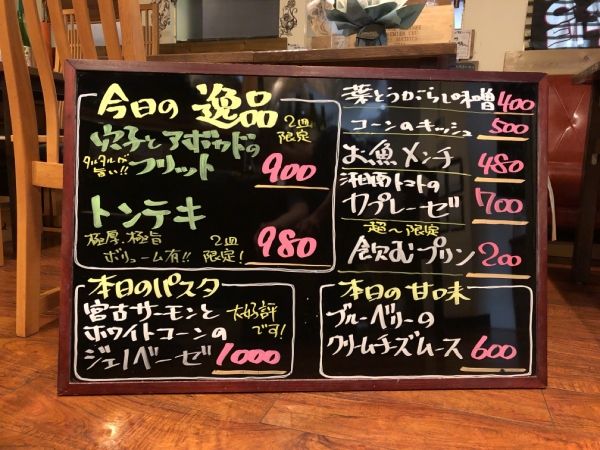 今日の 逸品
穴子とアボカドの
フリット
タルタルが
旨い!!
2皿
限定
900
トンテキ
極厚、極旨
ボリューム有!!
2皿
限定!
980
本日のパスタ
宮古サーモンと
ホワイトコーンの
ジェノベーゼ
大好評
です!
1000
葉とうがらし味噌 400
コーンのキッシュ 500
お魚メンチ 480
湘南トマトの
カプレーゼ 700
超〜限定
飲むプリン 200
本日の甘味
ブルーベリーの
クリームチーズムース 600